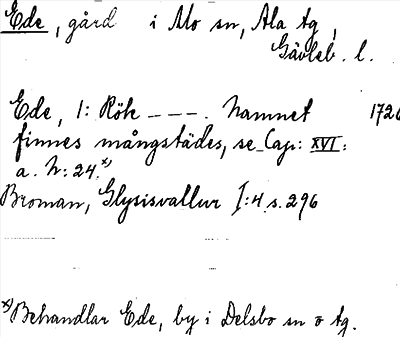 Ede, gård i Mo sn, Ala tg,
Gävleb. l.
Ede, 1: Rök ---. Namnet 1726
finnes mångstädes, se Cap: XVI:
a. N: 24.x)
Broman, Glysisvallur I:4 s. 296
x) Behandlar Ede, by i Delsbo sn o tg.